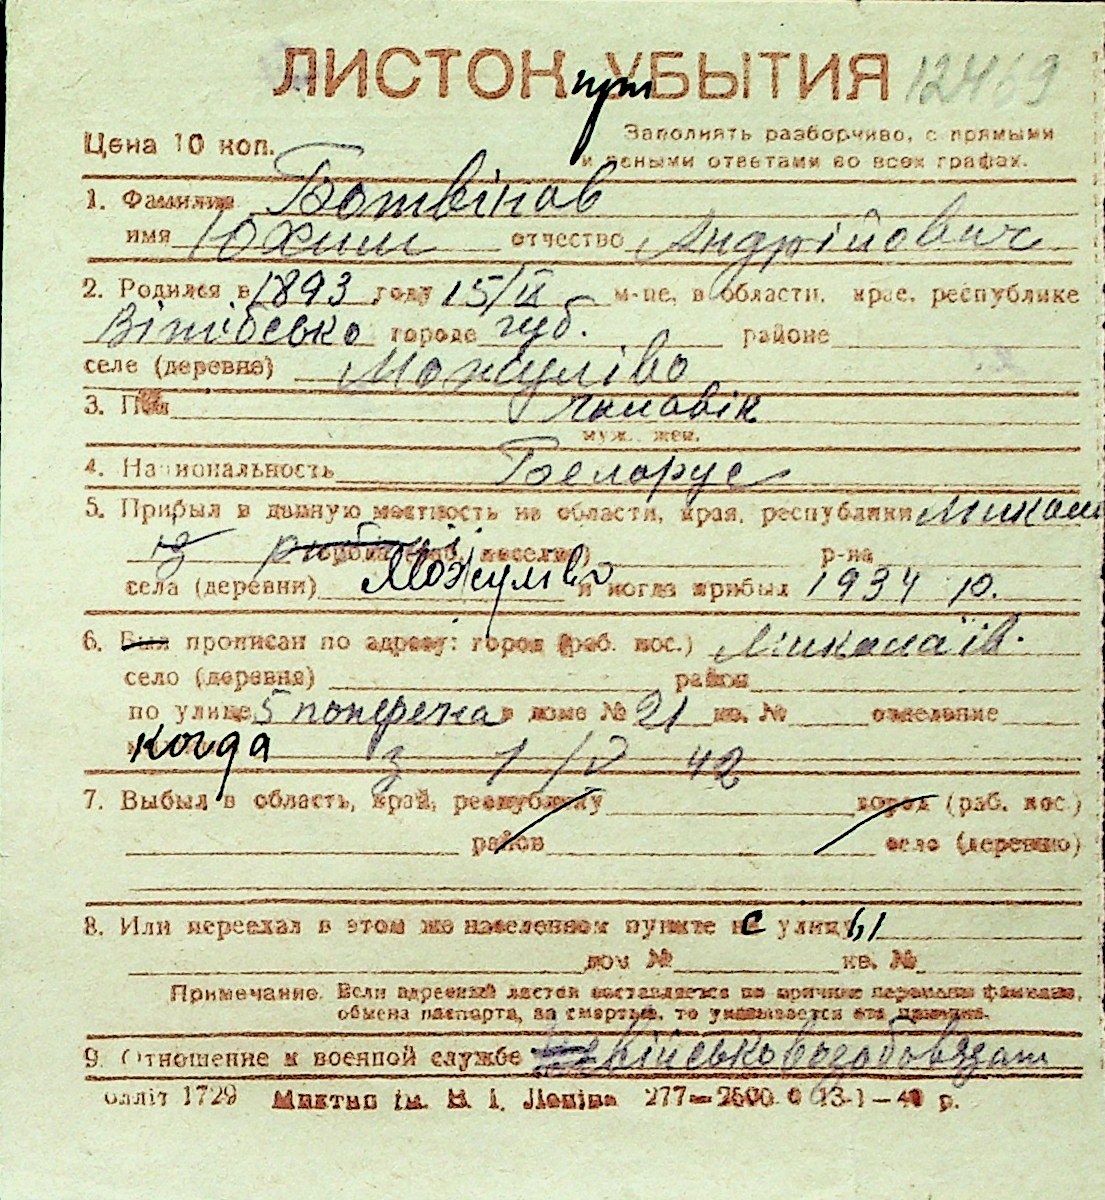 ЛИСТОК при УБЫТИЯ 12469
Цена 10 коп. Заполнять разборчиво, с прямыми
и ясными ответами во всех графах.
1. Фамилия Ботвінов
имя Юхим отчество Андрійович
2. Родился в 1893 году 15/II м-це, в области, крае, республике
Вітебсько городе губ. районе
селе (деревне) Можуліво
3. Пол чоловік
муж. жен.
4. Национальность Белорус
5. Прибыл в данную местность из области, края, республики Микол
із города (раб. поселка) р-на
села (деревни) Можуліво и когда прибыл 1934 р.
6. Был прописан по адресу: город (раб. пос.) Миколаїв.
село (деревня) район
по улице 5 поперечна в доме № 21 кв. № отделение
когда з 1/V 42
7. Выбыл в область, край, республику город (раб. пос.)
район село (деревню)
8. Или переехал в этом же населенном пункте с улицы
дом № кв. №
Примечание. Если адресный листок составляется по причине перемены фамилии,
обмена паспорта, за смертью, то указывается эта причина.
9. Отношение к военной службе військовозобовязан
Обліт 1729 Миктип ім. В. І. Леніна 277—2500 13-I—41 р.